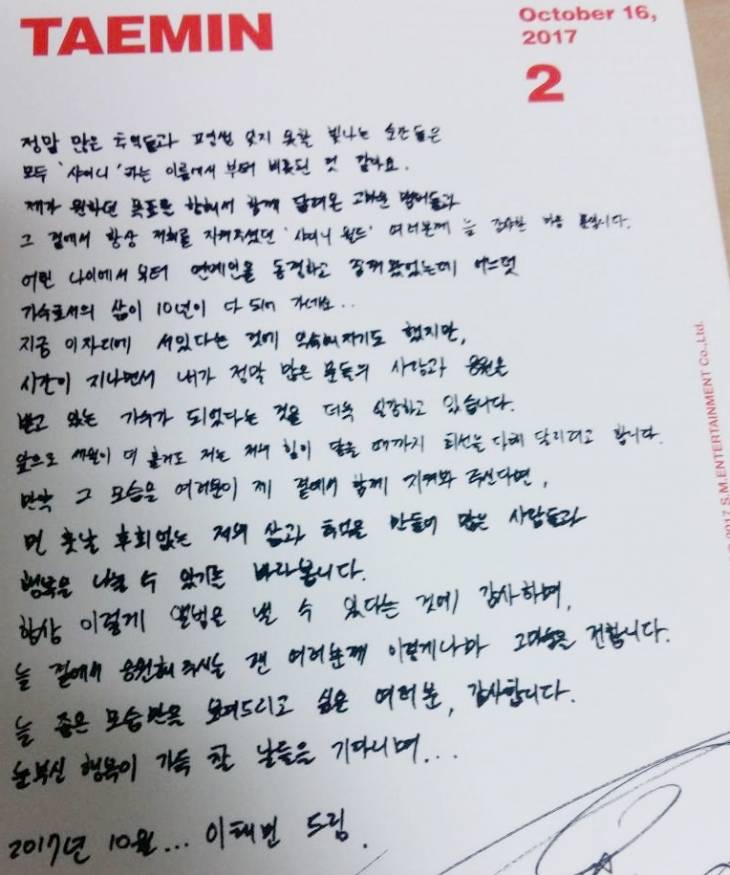 TAEMIN
October 16,
2017
2
정말 많은 추억들과 평생 잊지 못할 빛나는 순간들은
모두 '샤이니'라는 이름에서 부터 비롯된 것 같아요.
제가 원하던 목표를 향해서 함께 달려온 고마운 멤버들과
그 곁에서 항상 저희를 지켜주셨던 '샤이니 월드' 여러분께 늘 감사한 마음 뿐입니다.
어린 나이에서 부터 연예인을 동경하고 춤춰왔었는데 어느덧
가수로서의 삶이 10년이 다 되어 가네요..
지금 이자리에 서있다는 것에 익숙해지기도 했지만,
시간이 지나면서 내가 정말 많은 분들의 사랑과 응원을
받고 있는 가수가 되었다는 것을 더욱 실감하고 있습니다.
앞으로 세월이 더 흘러도 저는 저의 힘이 닿을 때까지 최선을 다해 달리려고 합니다.
만약 그 모습을 여러분이 제 곁에서 함께 지켜봐 주신다면,
먼 훗날 후회없는 저의 삶과 추억을 만들어 많은 사람들과
행복을 나눌 수 있기를 바라봅니다.
항상 이렇게 앨범을 낼 수 있다는 것에 감사하며,
늘 곁에서 응원해 주시는 팬 여러분께 이렇게나마 고마움을 전합니다.
늘 좋은 모습만을 보여드리고 싶은 여러분, 감사합니다.
눈부신 행복이 가득 할 날들을 기다리며...
2017년 10월... 이태민 드림.
© 2017 S.M.ENTERTAINMENT Co.,Ltd.